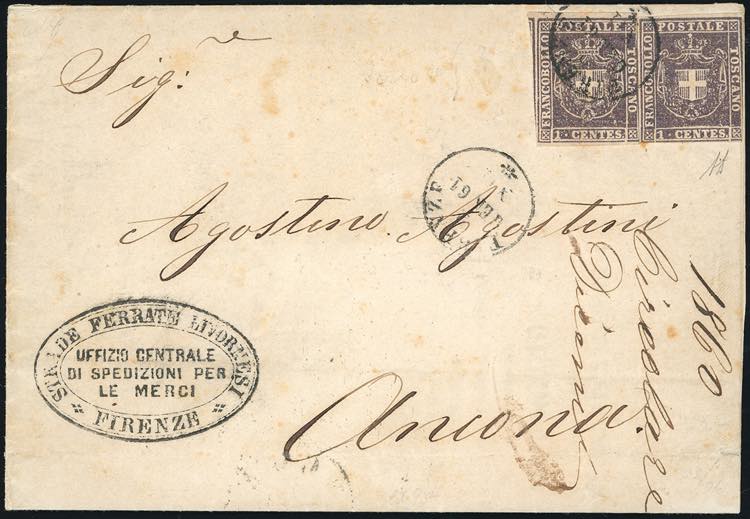 Sig.re
POSTALE
FRANCOBOLLO
TOSCANO
1 · CENTES.
POSTALE
FRANCOBOLLO
TOSCANO
1 · CENTES.
FIRENZE
61
Agostino Agostini
1860
Circolare
STRADE FERRATE LIVORNESI
UFFIZIO CENTRALE
DI SPEDIZIONI PER
LE MERCI
FIRENZE
Ancona